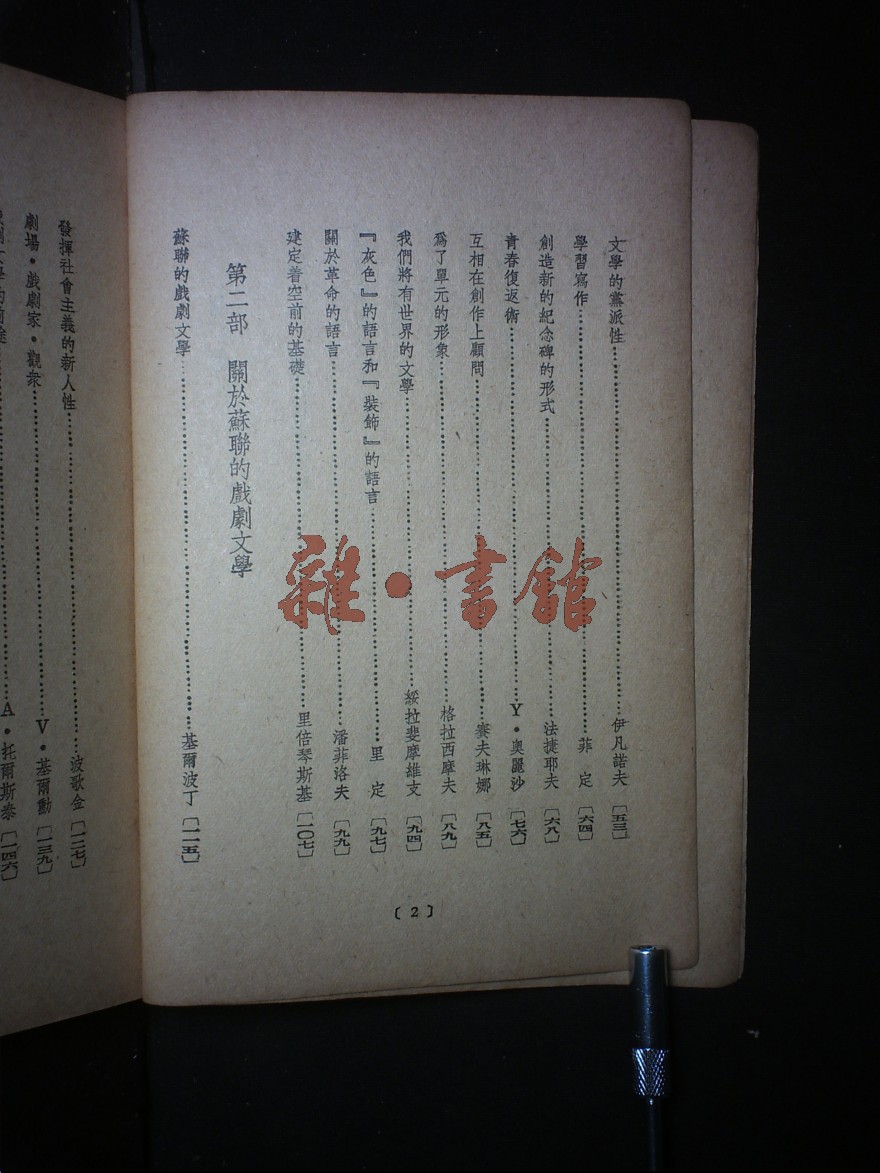 文學的黨派性…………伊凡諾夫〔五三〕
學習寫作…………菲　定〔六四〕
創造新的紀念碑的形式…………法捷耶夫〔六八〕
青春復返術…………Y·奧麗沙〔七六〕
互相在創作上顧問…………賽夫琳娜〔八五〕
爲了單元的形象…………格拉西摩夫〔八九〕
我們將有世界的文學…………綏拉斐摩維支〔九四〕
『灰色』的語言和『裝飾』的語言…………里　定〔九七〕
關於革命的語言…………潘菲洛夫〔九九〕
建定着空前的基礎…………里倍琴斯基〔一〇七〕
第二部　關於蘇聯的戲劇文學
蘇聯的戲劇文學…………基爾波丁〔一一五〕
〔2〕
發揮社會主義的新人性…………波歌金〔一二七〕
劇場·戲劇家·觀衆…………V·基爾勳〔一三九〕
A·托爾斯泰〔一四六〕
雜·書館